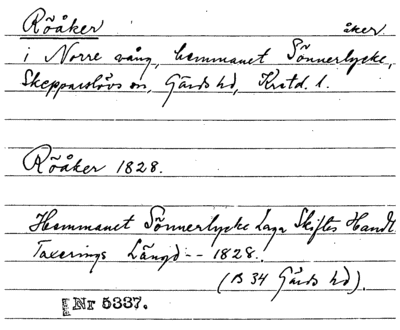 Röåker åker.
i Norre vång, hemmanet Sönnerlycke,
Skepparslövs sn, Gärds hd, Krstd. l.
Röåker 1828.
Hemmanet Sönnerlycke Laga Skiftes Handl.
Taxerings Längd -- 1828.
(B 34 Gärds hd).
Nr 5337.